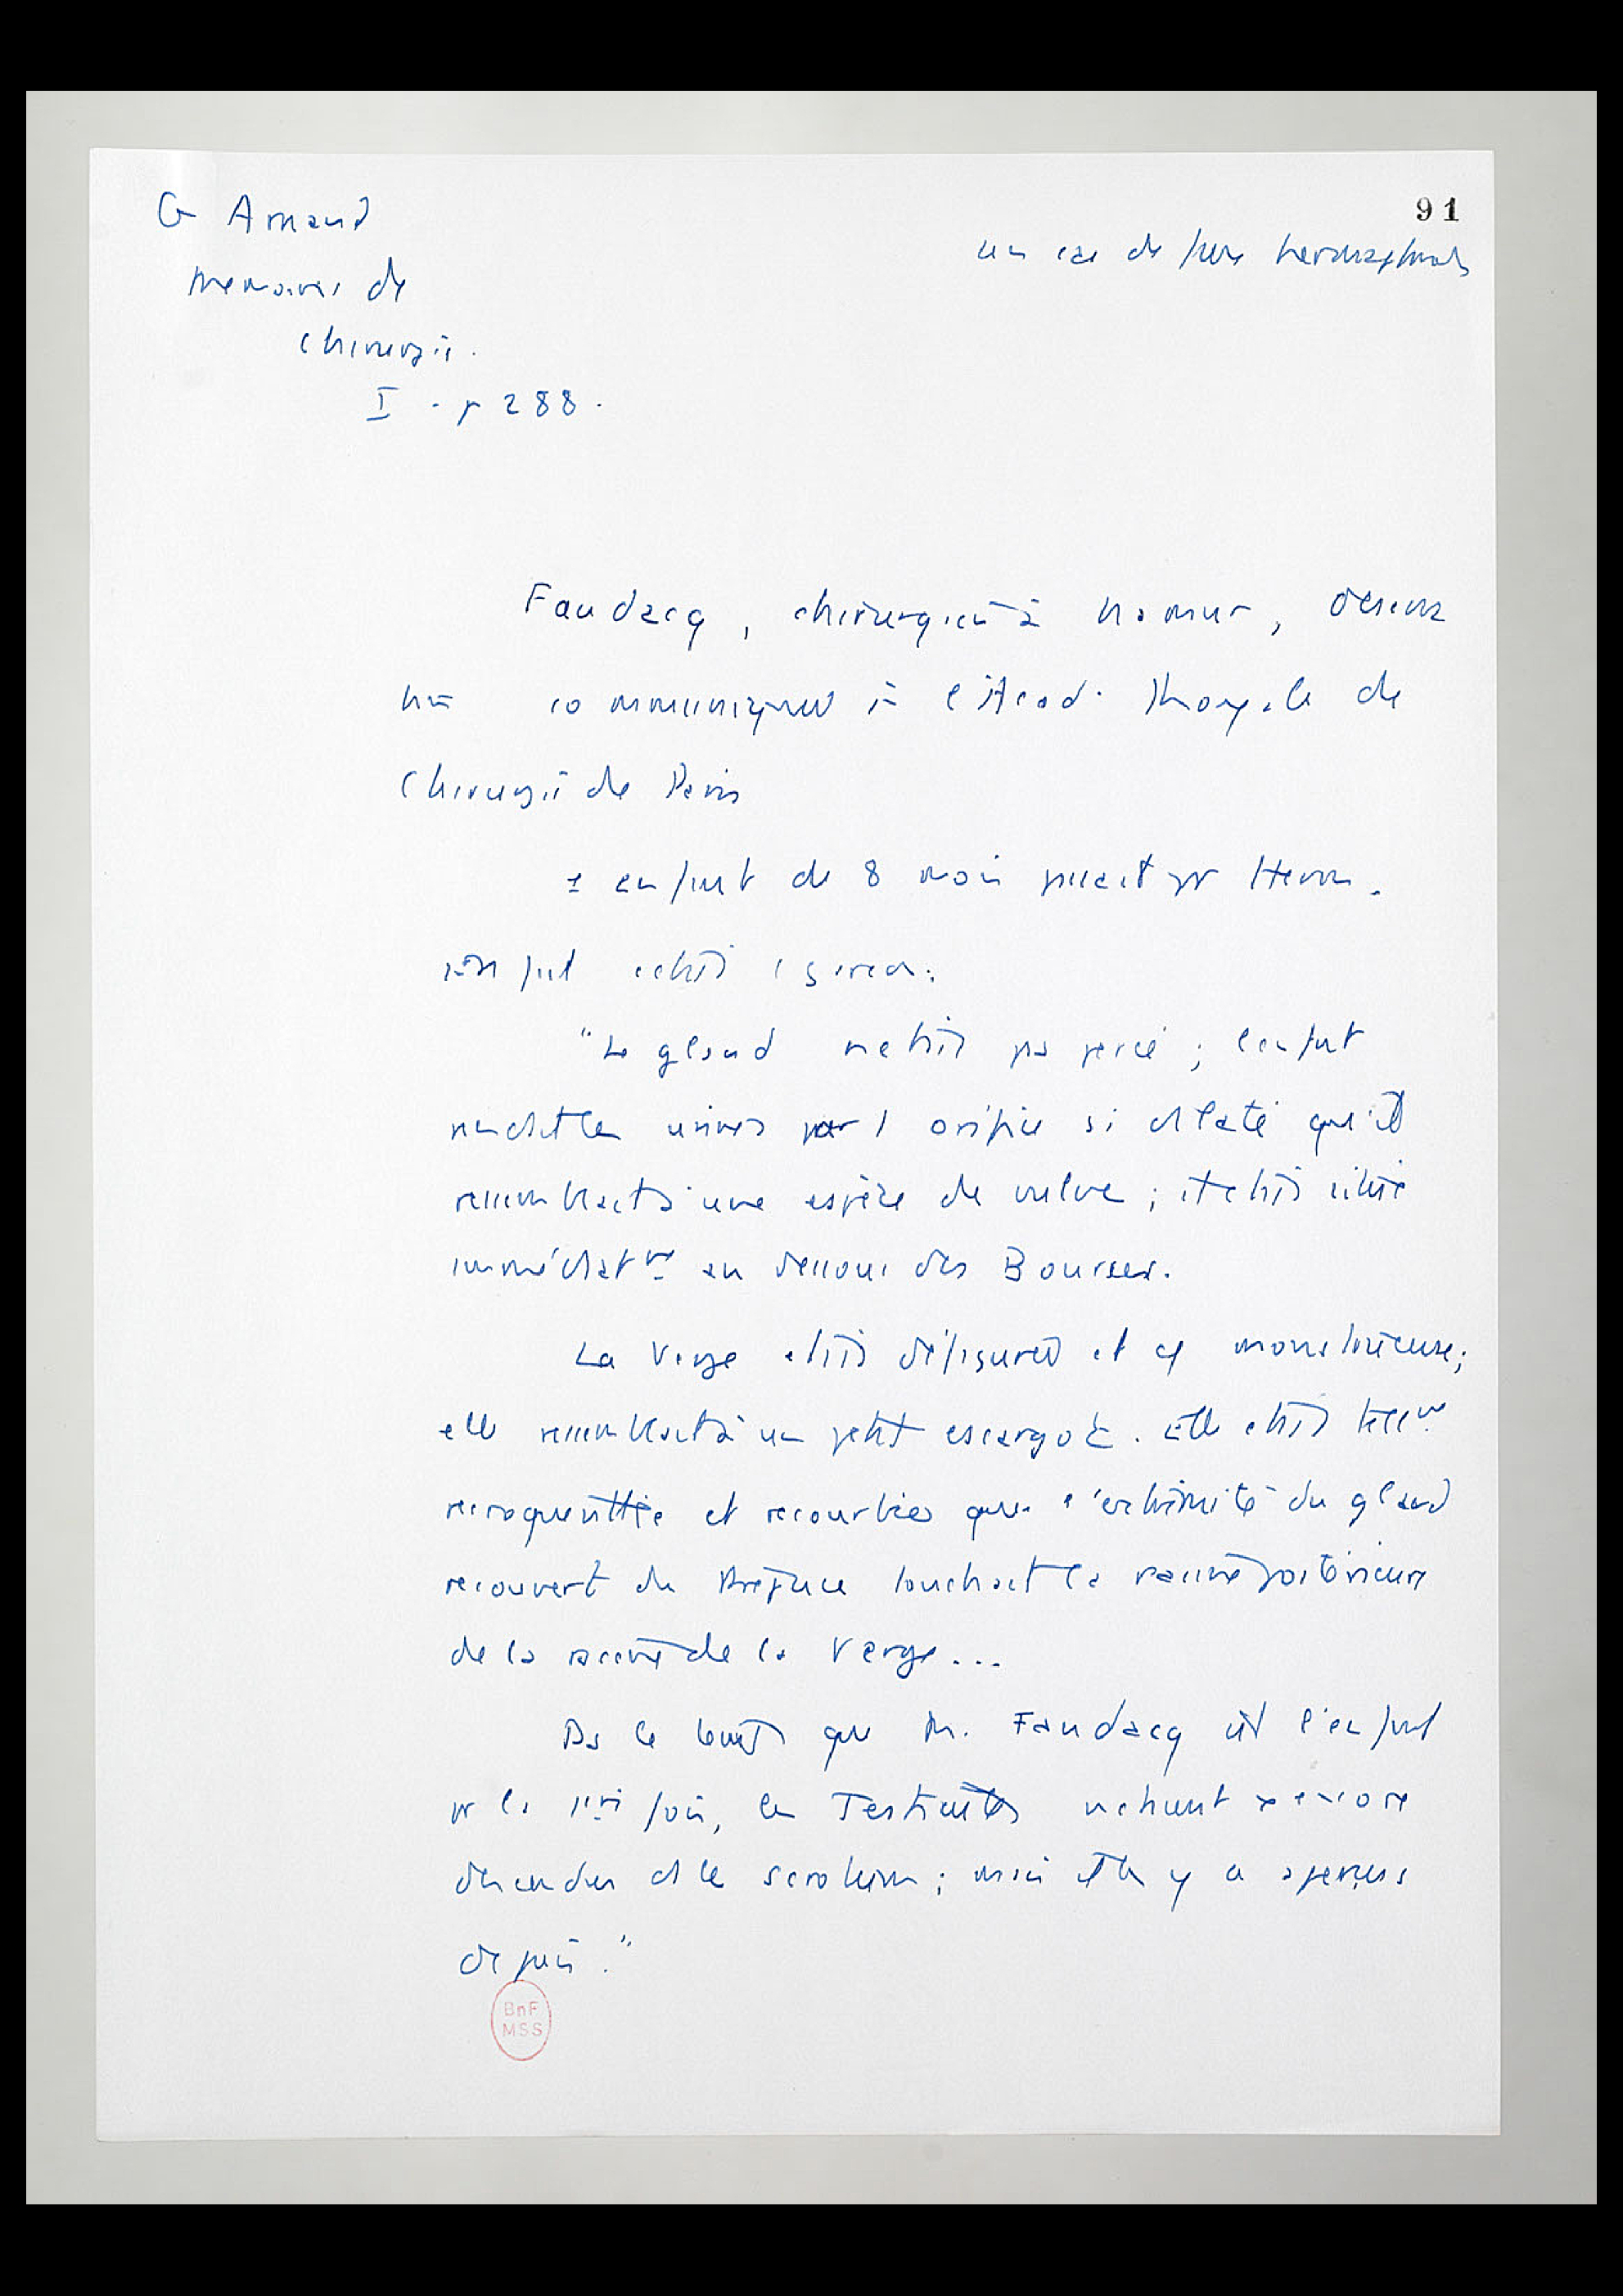 G Arnaud
91
un cas de faux hermaphrod
Memoires de
Chirurgie.
I - p 288.
Faudacq, chirurgien à Namur, dans
une communiqué à l'Acad. Royale de
Chirurgie de Paris
1 enfant de 8 mois passait pr Herm.
"Le gland n'était pas percé ; l'enfant
rendait les urines par 1 orifice si dilaté qu'il
ressemblait à une espèce de vulve ; était située
immédiatmt au dessous des Bourses.
La Verge était défigurée et monstrueuse;
elle ressemblait à un petit escargot. Elle était tellmt
recroquevillée et recourbée que l'extrémité du gland
recouvert du Prépuce touchait la racine postérieure
de la racine de la Verge...
Ds le temps que M. Faudacq vit l'enfant
pr la 1ere fois, les Testicules n'étaient encore
descendus ds le scrotum ; mais il les y a aperçus
depuis."
BnF
MSS